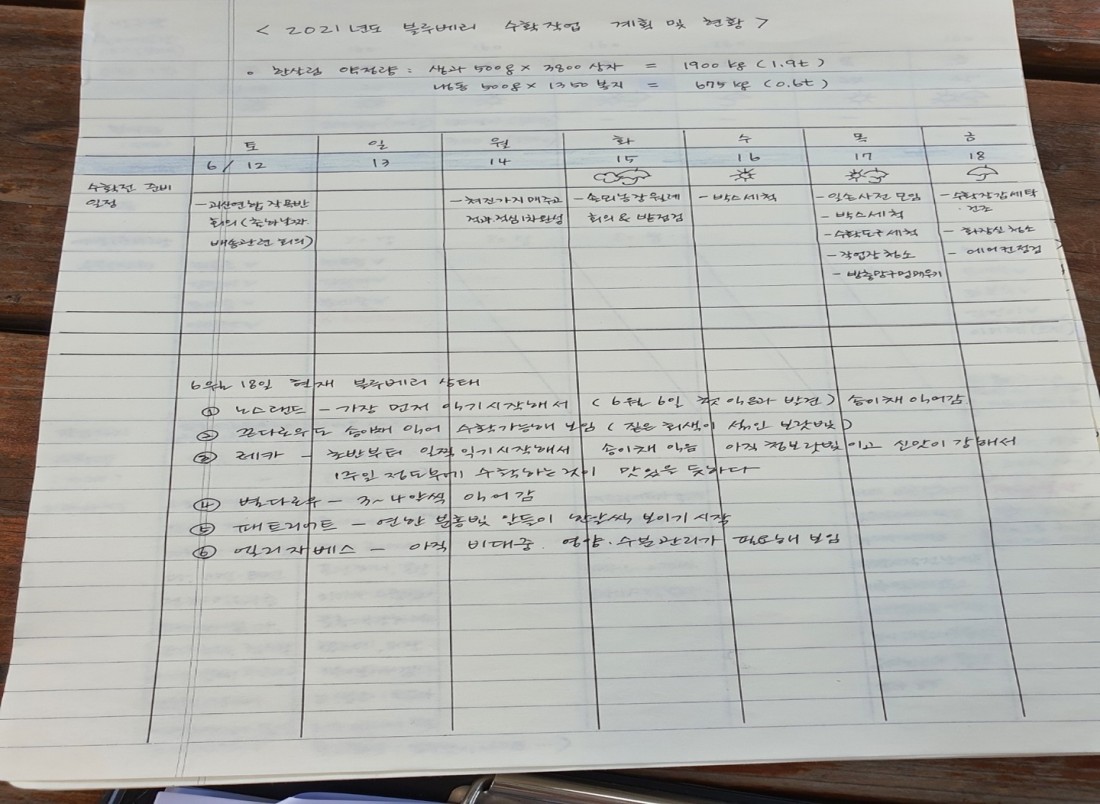 < 2021년도 블루베리 수확작업 계획 및 현황 >
• 한살림 약정량 : 생과 500g × 3800 상자 = 1900 kg (1.9t)
냉동 500g × 1350 봉지 = 675 kg (0.6t)
토 일 월 화 수 목 금
6/12 13 14 15 16 17 18
수확전 준비
일정
- 괴산연합 작목반
회의 (출하날짜
배송관련 회의)
- 처진가지 매주고
적과적심 1차완성
- 솔뫼농장 월례
회의 & 밭점검
- 박스세척
- 일손사전 모임
- 박스세척
- 수확도구 세척
- 작업장 청소
- 방충망구멍메우기
- 수확장갑세탁
· 건조
- 화장실 청소
- 에어컨점검
6월 18일 현재 블루베리 상태
① 노스랜드 - 가장 먼저 익기시작해서 (6월 6일 첫 익은과 발견) 송이채 익어감
③ 선다로우도 송이째 익어 수확가능해 보임 (짙은 회색이 섞인 보랏빛)
② 레카 - 초반부터 일찍익기시작해서 송이채 익음 아직 청보랏빛이고 신맛이 강해서
1주일 정도후에 수확하는것이 맛있을 듯하다
④ 벌다로우 - 3~4알씩 익어감
⑤ 패트리어트 - 연한 분홍빛 안듯이 한알씩 보이기 시작
⑥ 엘리자베스 - 아직 비대중. 영양·수분관리가 필요해 보임